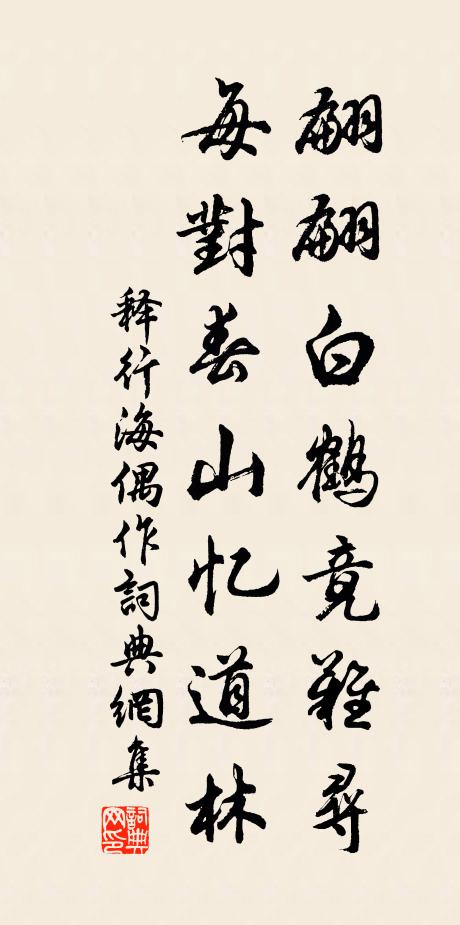 翩翩白鶴竟難尋
每對春山忆道林
释行海偶作詞典網集
詞典网印